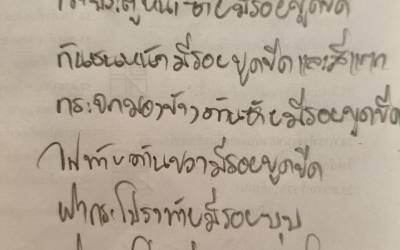 ประตูหน้าซ้ายมีรอยขูดขีด
กันชนหน้ามีรอยขูดขีดและสีแตก
กระจกมองข้างด้านซ้ายมีรอยขูดขีด
ไฟท้ายด้านขวามีรอยขูดขีด
ฝากระโปรงท้ายมีรอยบุบ